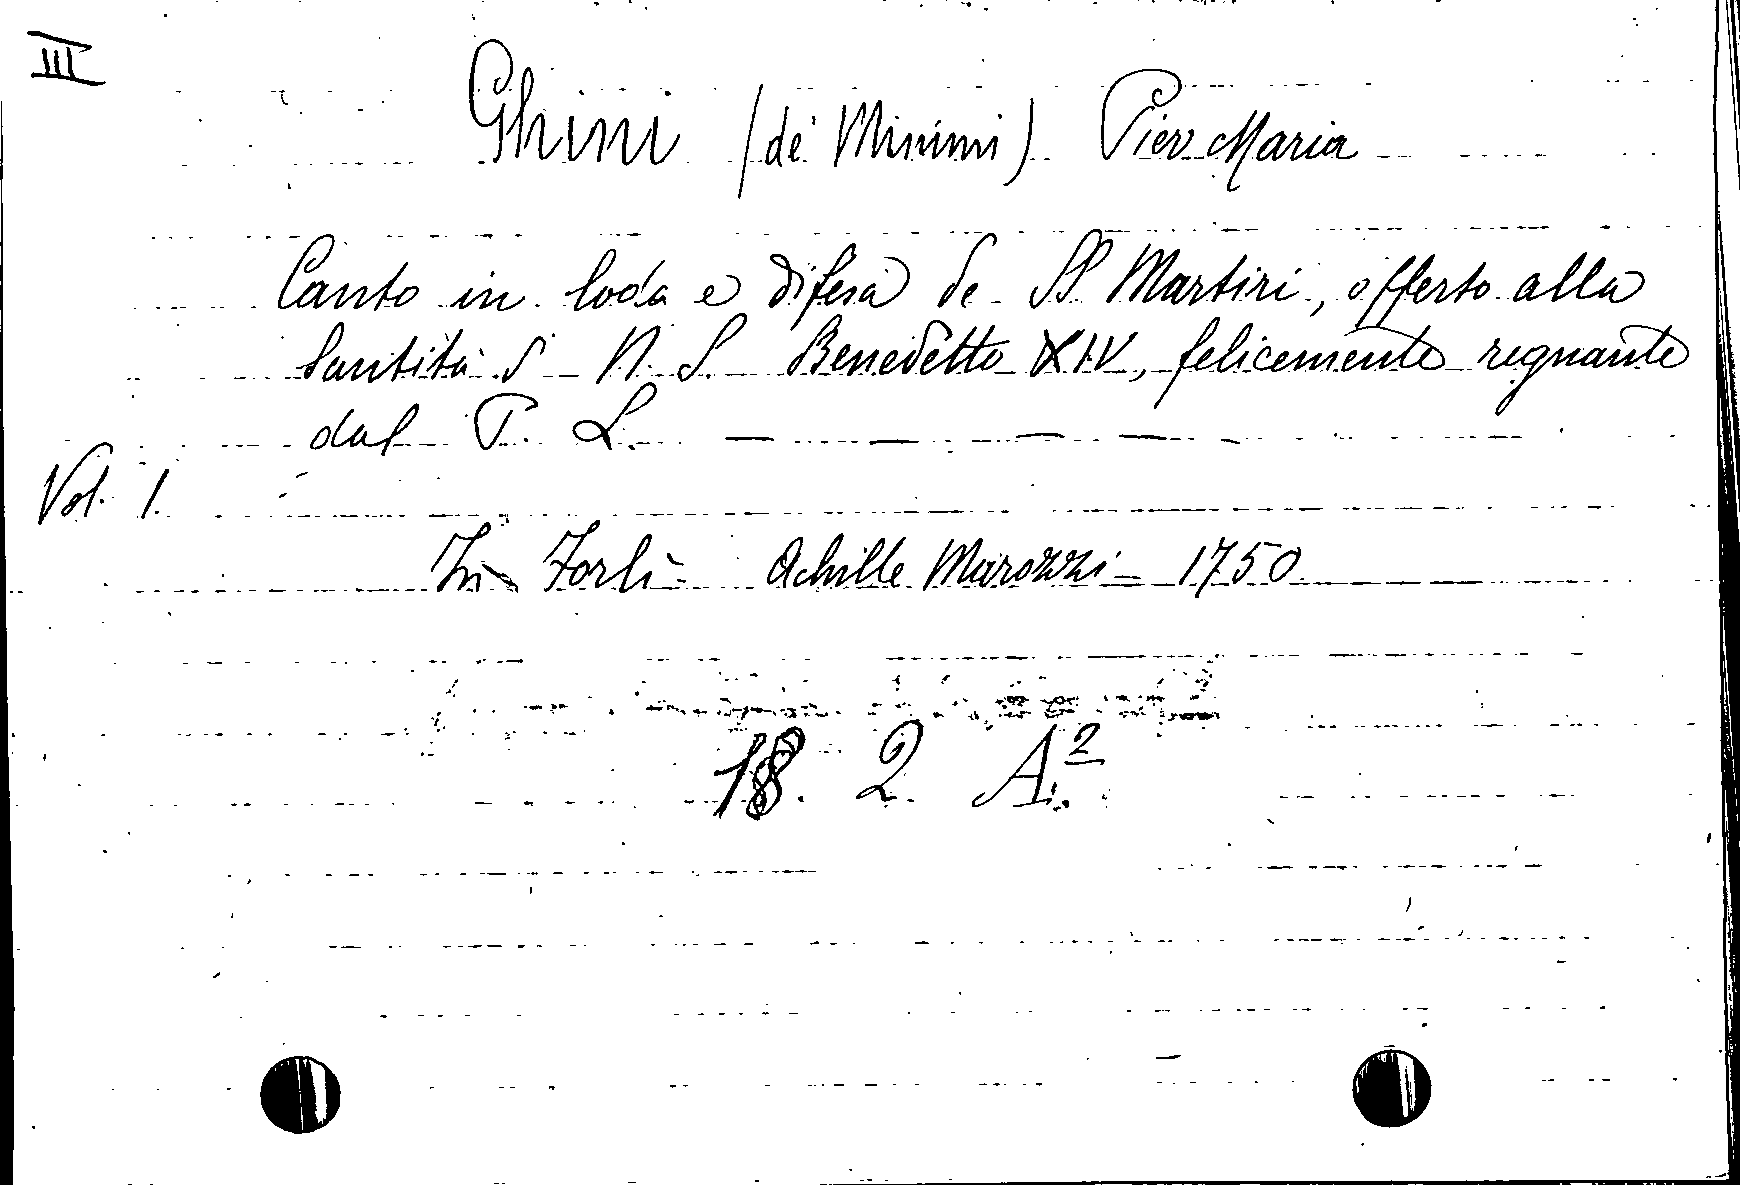 III
Ghini (de' Minimi) Pier Maria
Canto in loda e difesa de SS Martiri, offerto alla
Santità d N. S. Benedetto XIV, felicemente regnante
dal P. L.
Vol. 1.
In Forlì Achille Marozzi 1750
18. 2. A.²